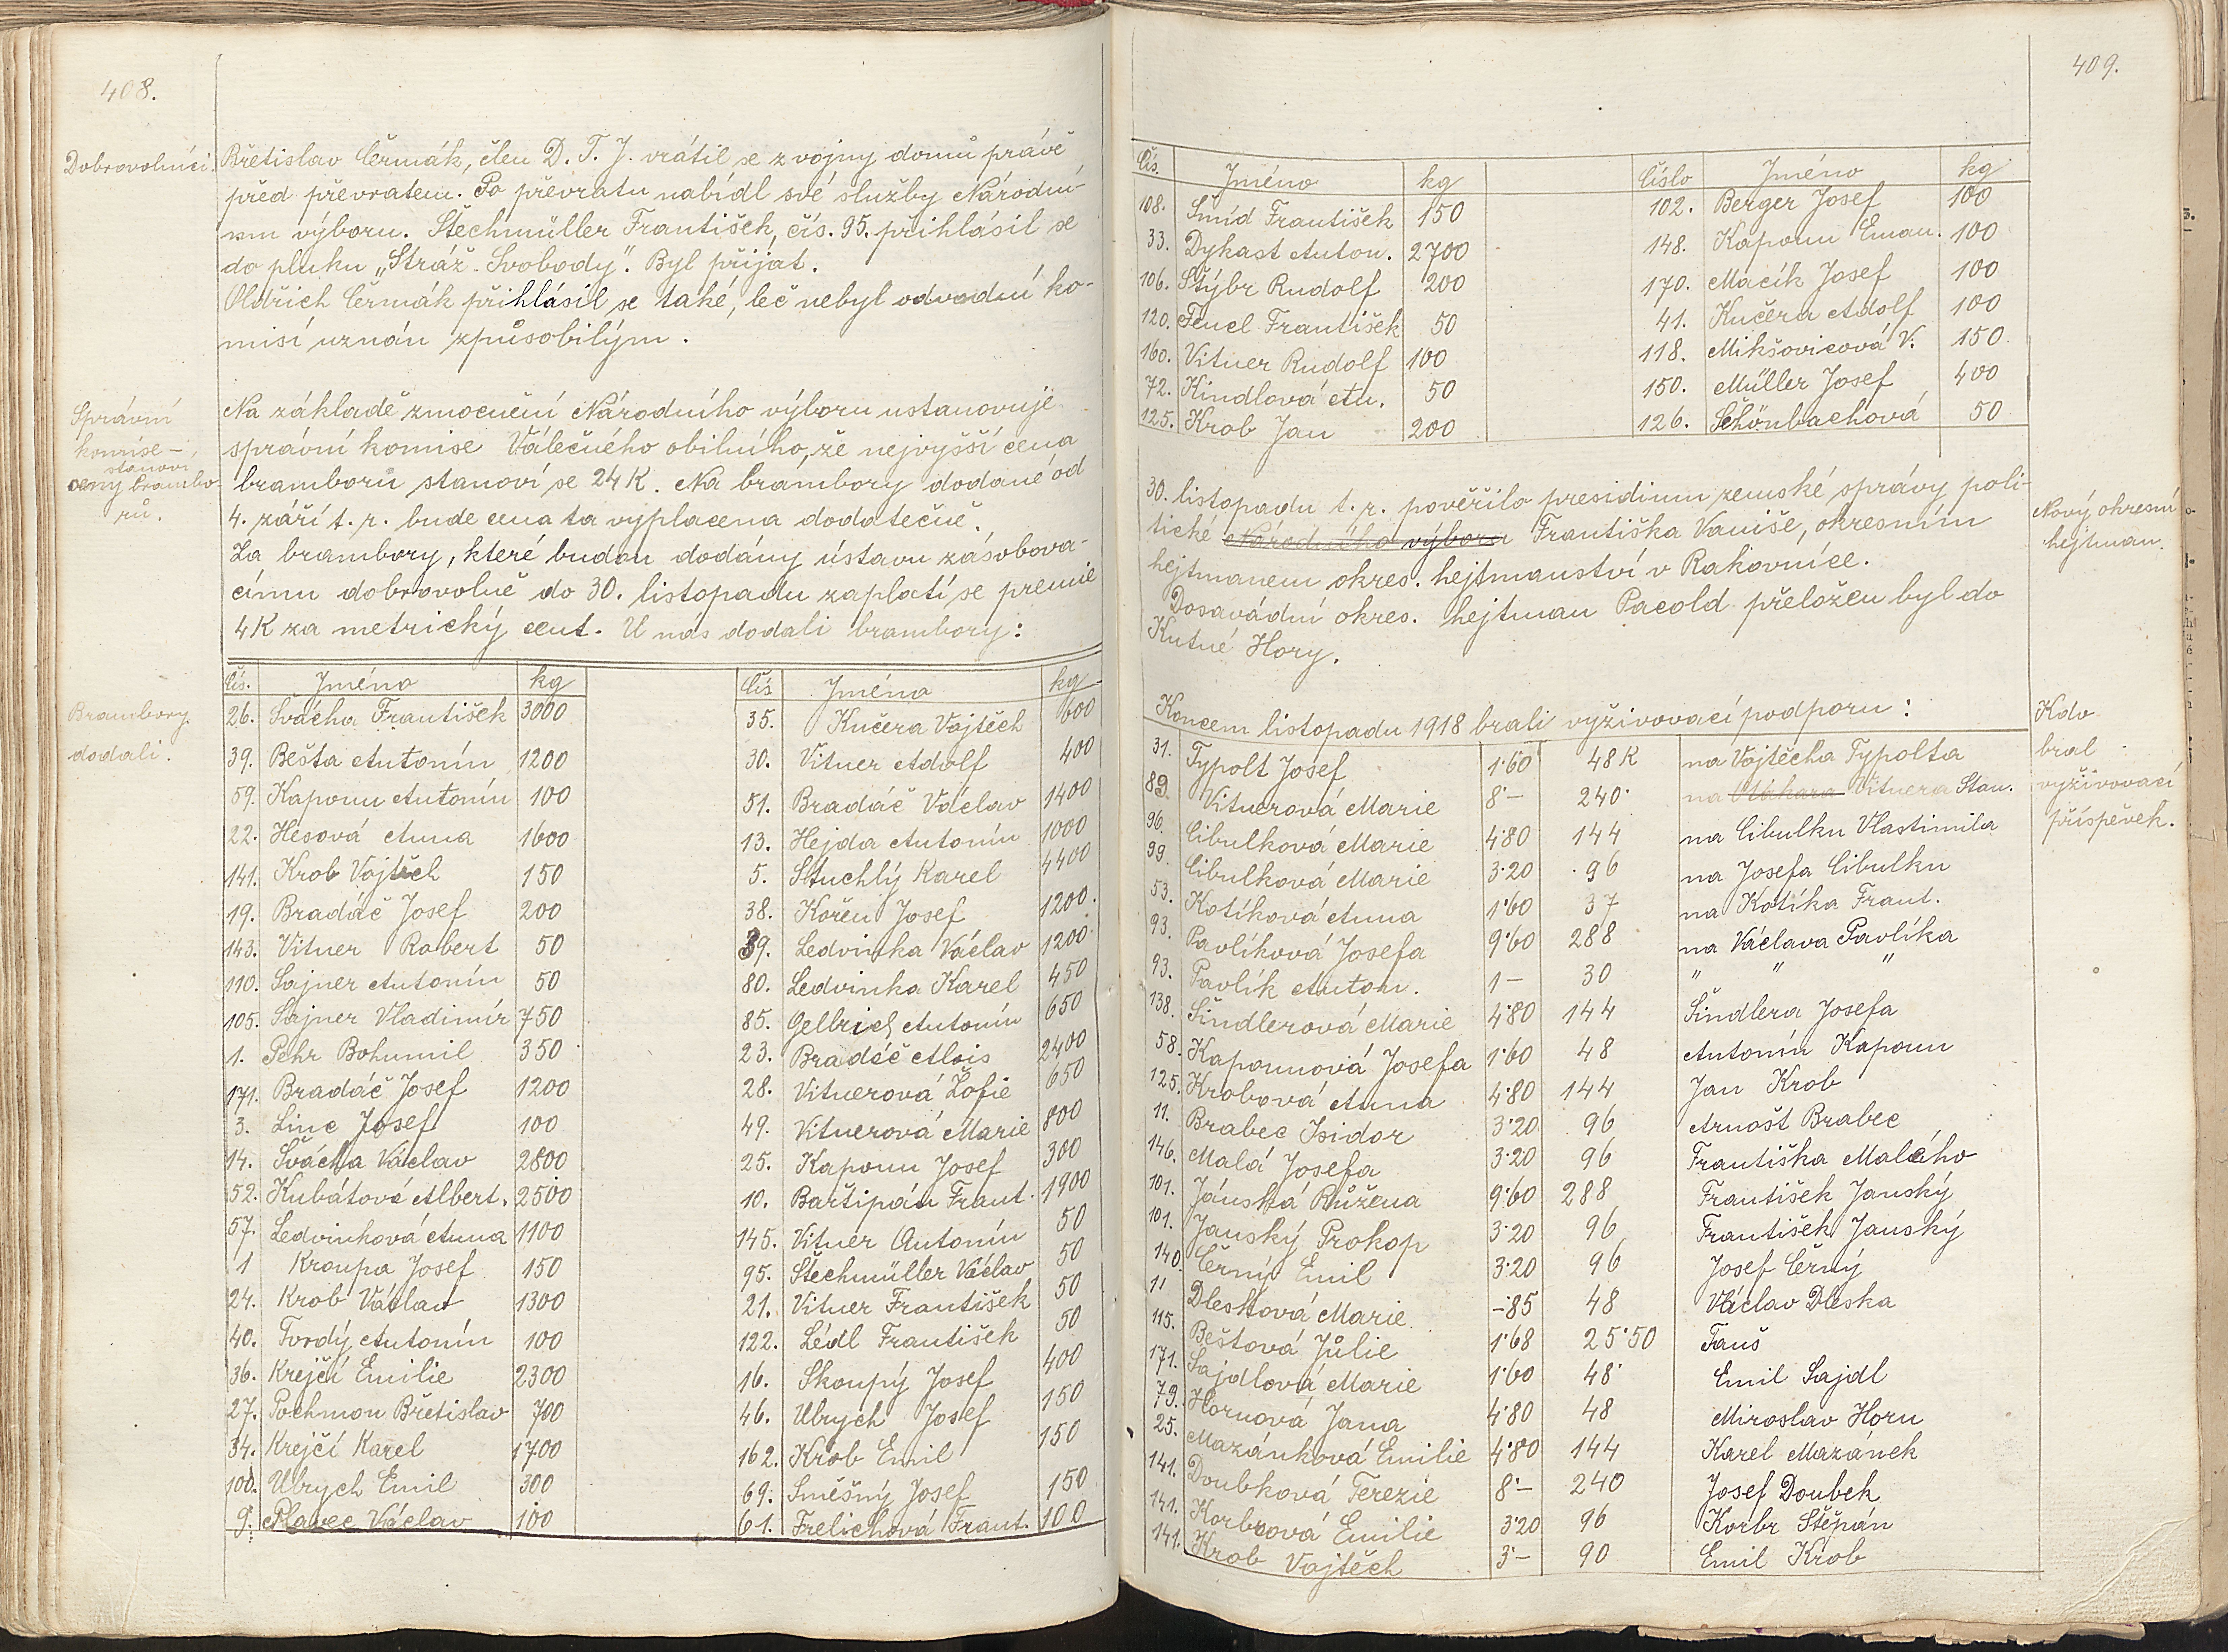 408.
Dobrovolníci. Břetislav Čermák, člen D. T. J. vrátil se z vojny domů právě
před převratem. Po převratu nabídl své služby Národní-
mu výboru. Štechmüller František, čís. 95. přihlásil se
do pluku „Stráž Svobody". Byl přijat.
Oldřich Čermák přihlásil se také, leč nebyl odvodní ko-
misí uznán způsobilým.
Správní
komise -
stanoví
ceny brambo-
rů.
Na základě zmocnění Národního výboru ustanovuje
správní komise Válečného obilního, že nejvyšší cena
bramborů stanoví se 24 K. Na brambory dodané od
4. září t. r. bude cena ta vyplacena dodatečně.
Za brambory, které budou dodány ústavu zásobova-
címu dobrovolně do 30. listopadu zaplatí se premie
4 K za metrický cent. U nás dodali brambory:
Brambory
dodali.
Čís. Jméno kg Čís Jméno kg
26. Švácha František 3000 35. Kučera Vojtěch 600
39. Bešta Antonín 1200 30. Vitner Adolf 400
59. Kapoun Antonín 100 51. Bradáč Václav 1400
22. Hesová Anna 1600 13. Hejda Antonín 1000
141. Krob Vojtěch 150 5. Stuchlý Karel 4400
19. Bradáč Josef 200 38. Kořen Josef 1200.
143. Vitner Robert 50 39. Ledvinka Václav 1200
110. Sajner Antonín 50 80. Ledvinka Karel 450
105. Sajner Vladimír 750 85. Gelbrich Antonín 650
1. Pehr Bohumil 350 23. Bradáč Alois 2400
171. Bradáč Josef 1200 28. Vitnerová Žofie 650
3. Linc Josef 100 49. Vitnerová Marie 800
14. Švácha Václav 2800 25. Kapoun Josef 300
52. Kubátová Albert. 2500 10. Bařtipán Frant. 1900
57. Ledvinková Anna 1100 145. Vitner Antonín 50
1 Kroupa Josef 150 95. Štechmüller Václav 50
24. Krob Václav 1300 21. Vitner František 50
40. Tvrdý Antonín 100 122. Lédl František 50
36. Krejčí Emilie 2300 16. Skoupý Josef 400
27. Pochmon Břetislav 700 46. Ubrych Josef 150
34. Krejčí Karel 1700 162. Krob Emil 150
100. Ubrych Emil 300 69. Směšný Josef 150
9. Plavec Václav 100 61. Frelichová Frant. 100
409.
Čís. Jméno kg Číslo Jméno kg
108. Šmíd František 150 102. Berger Josef 100
33. Dykast Anton. 2700 148. Kapoun Eman. 100
106. Štýbr Rudolf 200 170. Macík Josef 100
120. Fencl František 50 41. Kučera Adolf 100
160. Vitner Rudolf 100 118. Mikšovicová V. 150
72. Kindlová An. 50 150. Müller Josef 400
125. Krob Jan 200 126. Schönbachová 50
30. listopadu t. r. pověřilo presidium zemské správy poli-
tické Národního výboru Františka Vaniše, okresním
hejtmanem okres. hejtmanství v Rakovníce.
Dosavádní okres. hejtman Pacold přeložen byl do
Kutné Hory.
Nový okresní
hejtman.
Koncem listopadu 1918 brali vyživovací podporu:
Kdo
bral
vyživovací
příspěvek.
31. Typolt Josef 1·60 48 K na Vojtěcha Typolta
89 Vitnerová Marie 8·- 240· na Otakara Vitnera Stan.
96. Cibulková Marie 4·80 144 na Cibulku Vlastimila
99. Cibulková Marie 3·20 96 na Josefa Cibulku
53. Kotíková Anna 1·60 37 na Kotíka Frant.
93. Pavlíková Josefa 9·60 288 na Václava Pavlíka
93. Pavlík Anton. 1- 30 " " "
138. Šindlerová Marie 4·80 144 Šindlera Josefa
58. Kapounová Josefa 1·60 48 Antonín Kapoun
125. Krobová Anna 4·80 144 Jan Krob
11. Brabec Isidor 3·20 96 Arnošt Brabec
146. Malá Josefa 3·20 96 Františka Malého
101. Jánská Růžena 9·60 288 František Janský
101. Janský Prokop 3·20 96 František Janský
140. Černý Emil 3·20 96 Josef Černý
11 Dlesková Marie -·85 48 Václav Dleska
115. Beštová Júlie 1·68 25·50 Fauš
171. Sajdlová Marie 1·60 48· Emil Sajdl
79. Hornová Jana 4·80 48 Miroslav Horn
25. Mazánková Emilie 4·80 144 Karel Mazánek
141. Doubková Terezie 8·- 240 Josef Doubek
141. Korbrová Emilie 3·20 96 Korbr Štěpán
141. Krob Vojtěch 3·- 90 Emil Krob